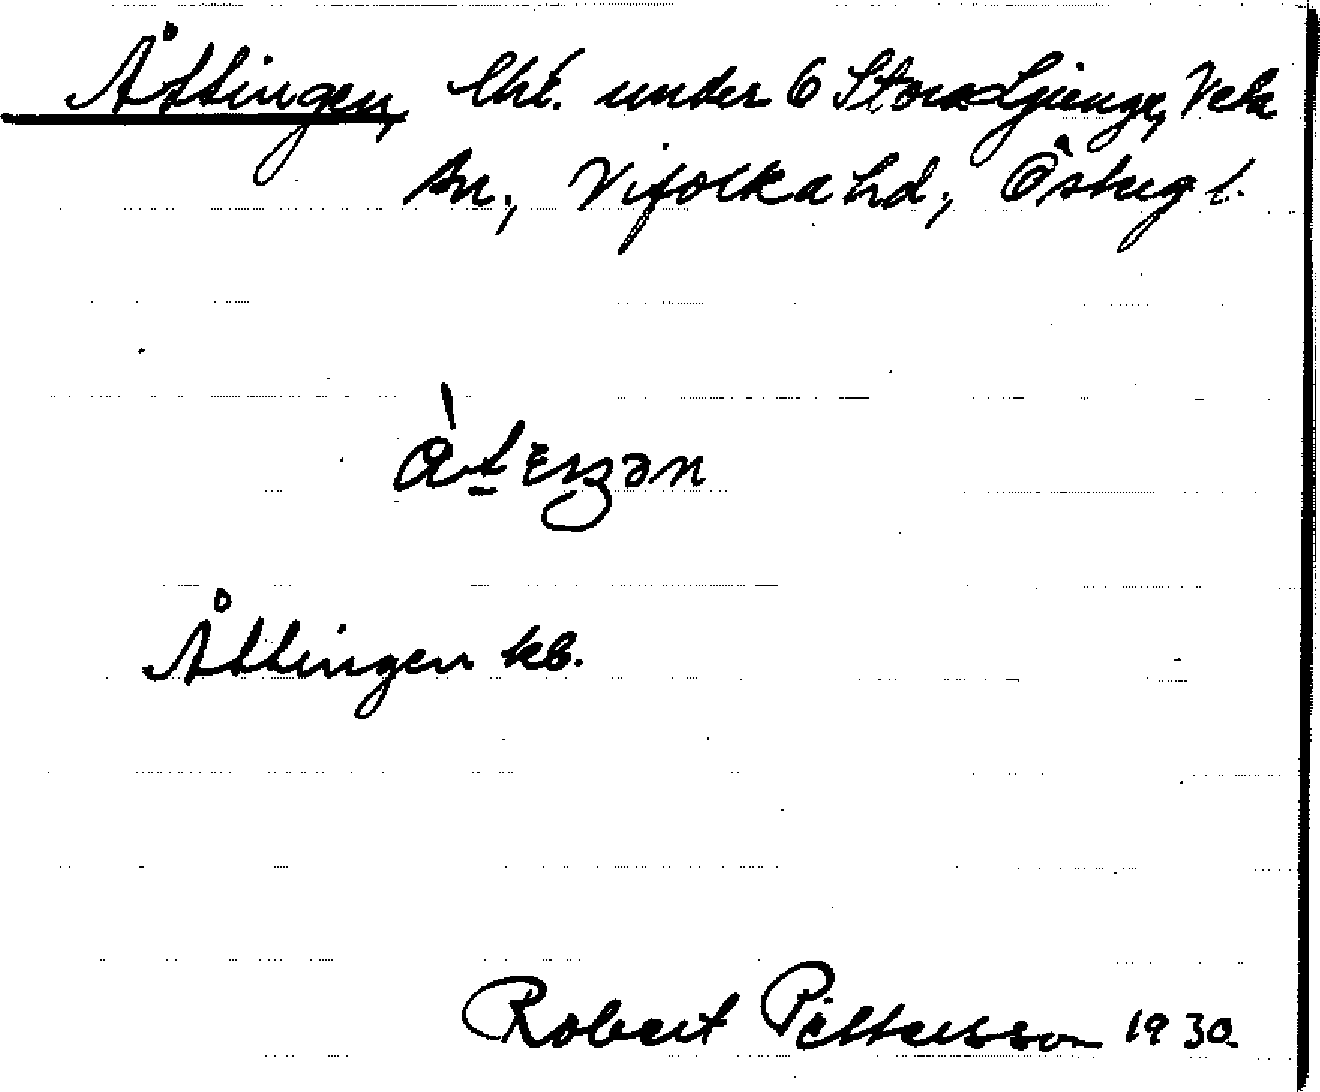 Åttingen, lht. under 6 Stora Ljunga, Veta
sn., Vifolka hd, Östergl.
Åttingen kb.
Robert Pettersson 1930.